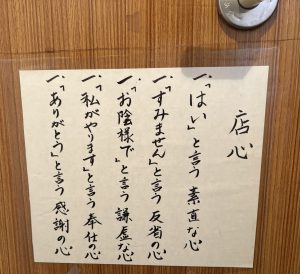 店心
一、「はい」と言う素直な心
一、「すみません」と言う反省の心
一、「お陰様で」と言う謙虚な心
一、「私がやります」と言う奉仕の心
一、「ありがとう」と言う感謝の心